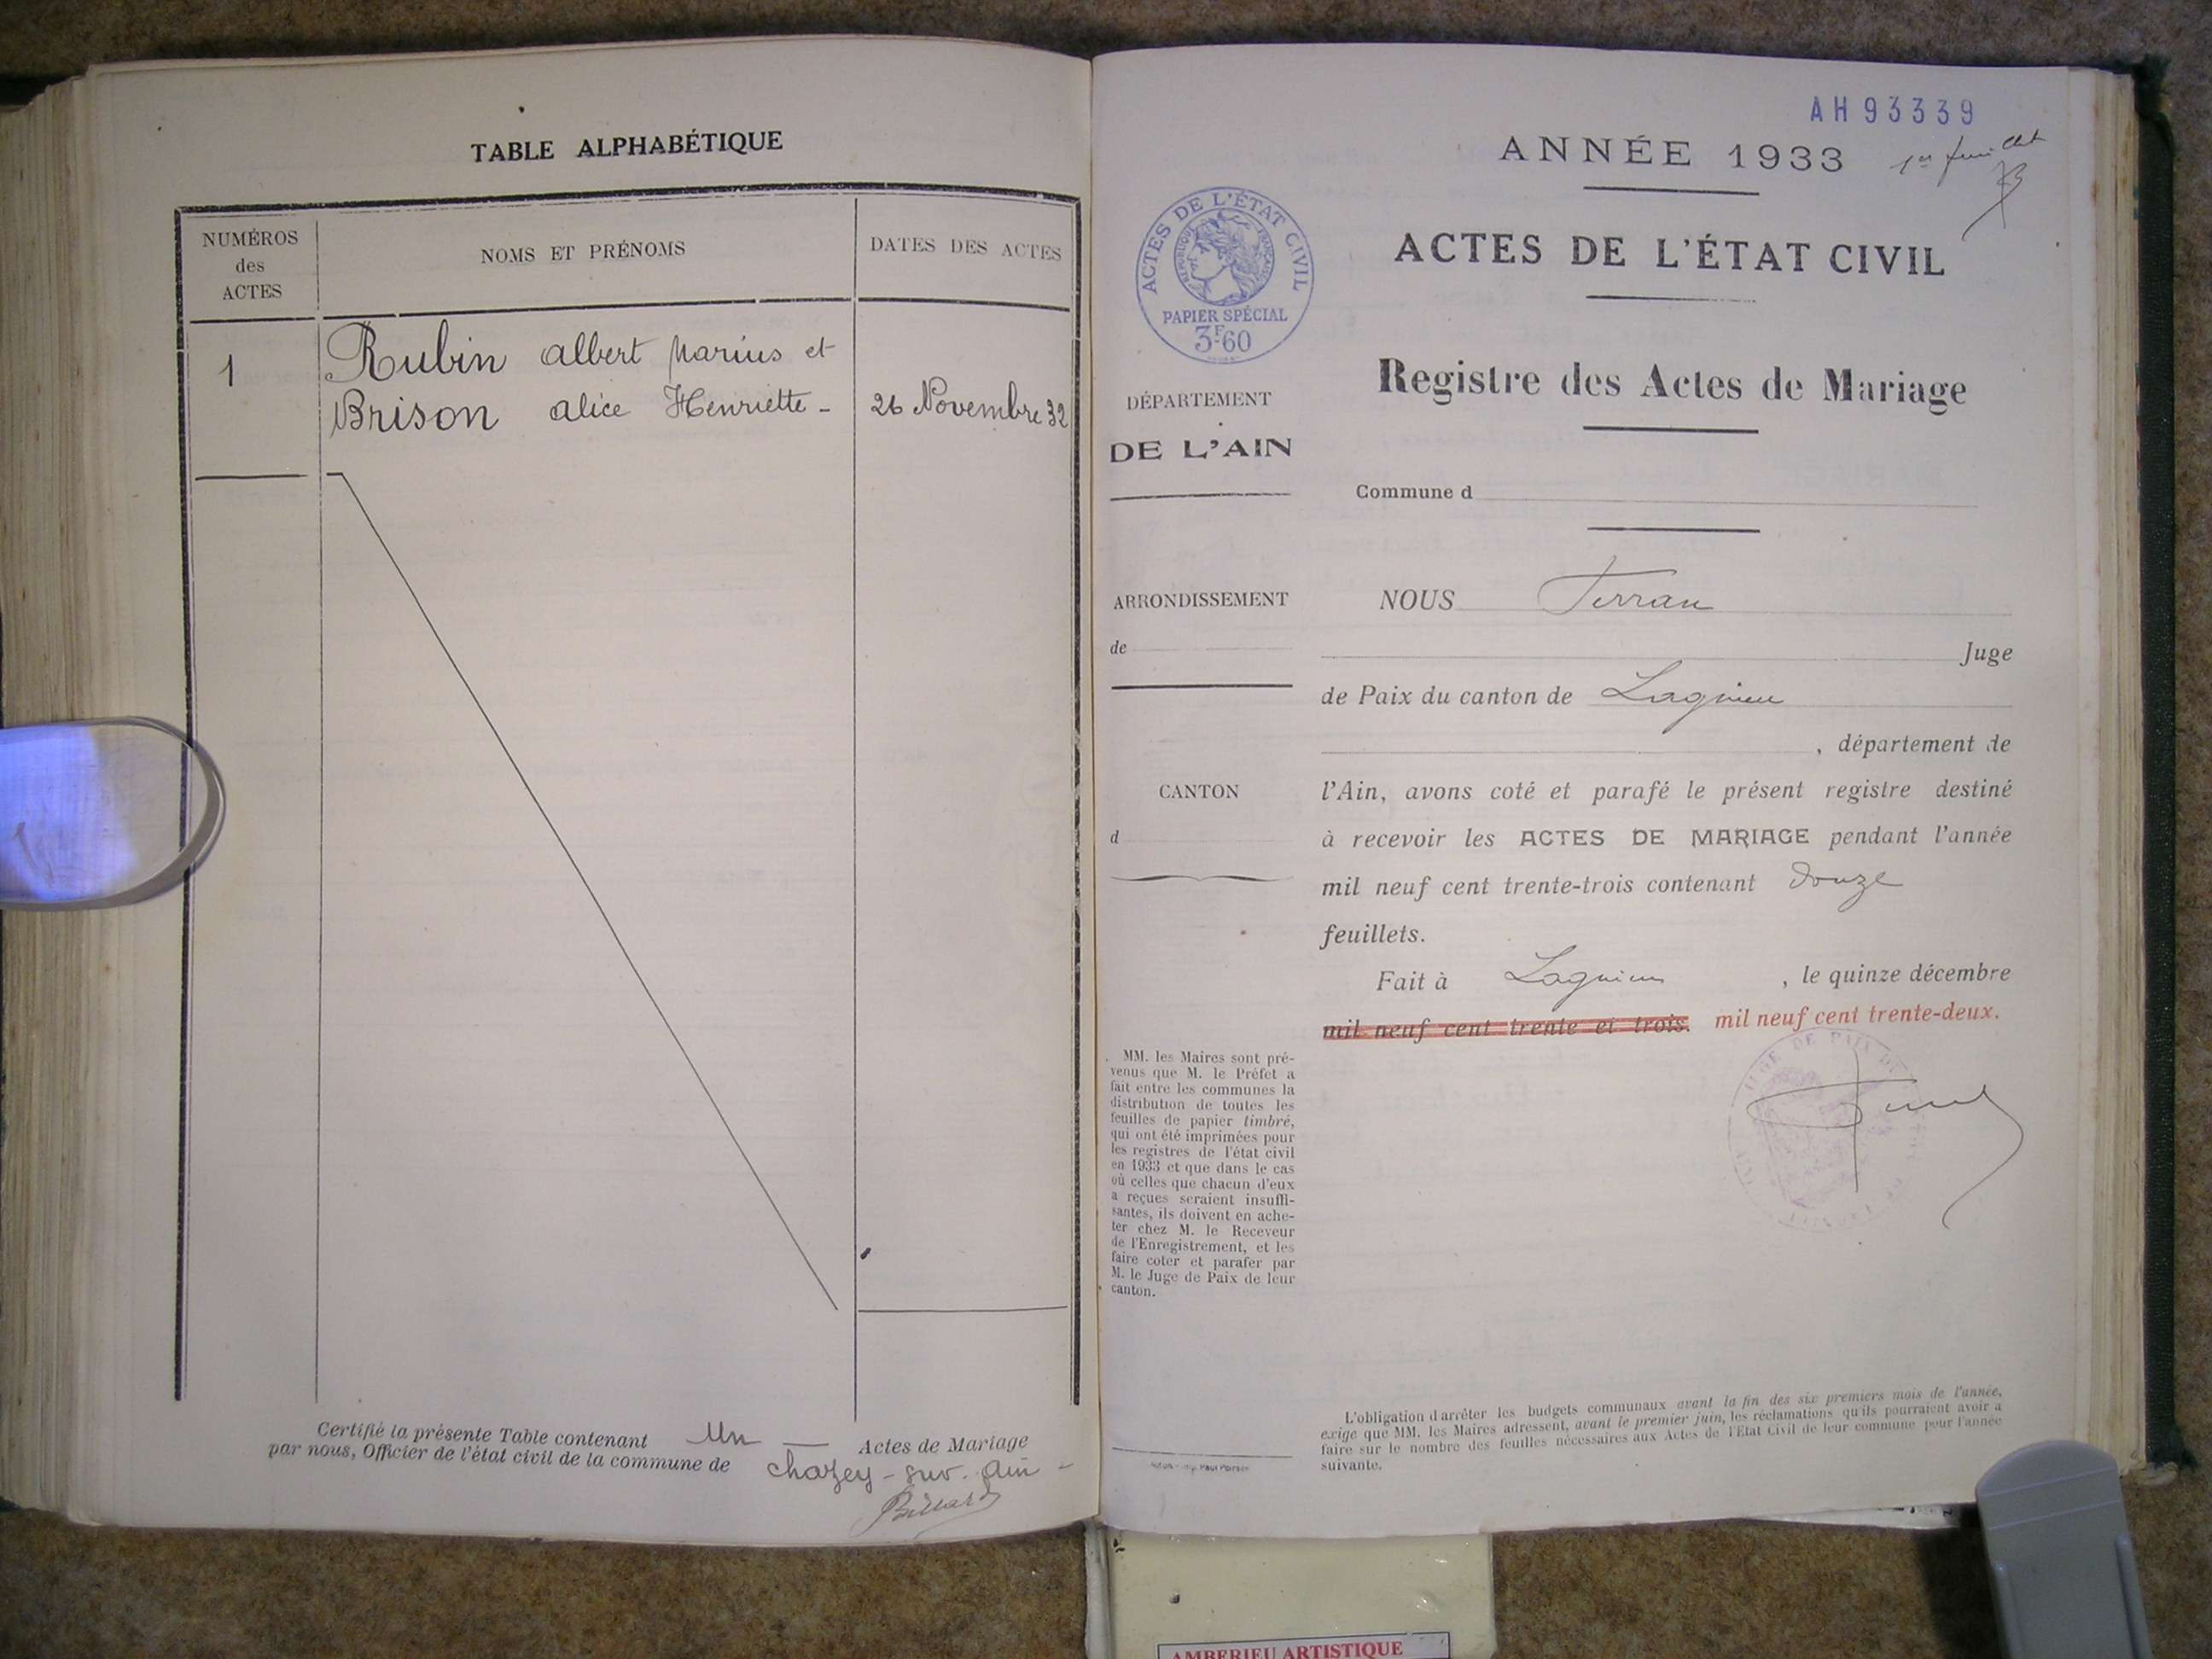 TABLE ALPHABÉTIQUE
NUMÉROS
des
ACTES
NOMS ET PRÉNOMS
DATES DES ACTES
1
Rubin Albert Marius et
Brison Alice Henriette -
26 Novembre 32
Certifié la présente Table contenant Un — Actes de Mariage
par nous, Officier de l'état civil de la commune de Chazey-sur-Ain -
Billard
AH 93339
ANNÉE 1933
1er feuillet
ACTES DE L'ÉTAT CIVIL
RÉPUBLIQUE FRANÇAISE
PAPIER SPÉCIAL
3F60
ACTES DE L'ÉTAT CIVIL
Registre des Actes de Mariage
DÉPARTEMENT
DE L'AIN
Commune d
ARRONDISSEMENT
de
CANTON
d
NOUS
Juge
de Paix du canton de Lagnieu
, département de
l'Ain, avons coté et parafé le présent registre destiné
à recevoir les ACTES DE MARIAGE pendant l'année
mil neuf cent trente-trois contenant douze
feuillets.
Fait à Lagnieu , le quinze décembre
mil neuf cent trente et trois. mil neuf cent trente-deux.
MM. les Maires sont pré-
venus que M. le Préfet a
fait entre les communes la
distribution de toutes les
feuilles de papier timbré,
qui ont été imprimées pour
les registres de l'état civil
en 1933 et que dans le cas
où celles que chacun d'eux
a reçues seraient insuffi-
santes, ils doivent en ache-
ter chez M. le Receveur
de l'Enregistrement, et les
faire coter et parafer par
M. le Juge de Paix de leur
canton.
L'obligation d'arrêter les budgets communaux avant la fin des six premiers mois de l'année,
exige que MM. les Maires adressent, avant le premier juin, les réclamations qu'ils pourraient avoir à
faire sur le nombre des feuilles nécessaires aux Actes de l'Etat Civil de leur commune pour l'année
suivante.
AMBERIEU ARTISTIQUE